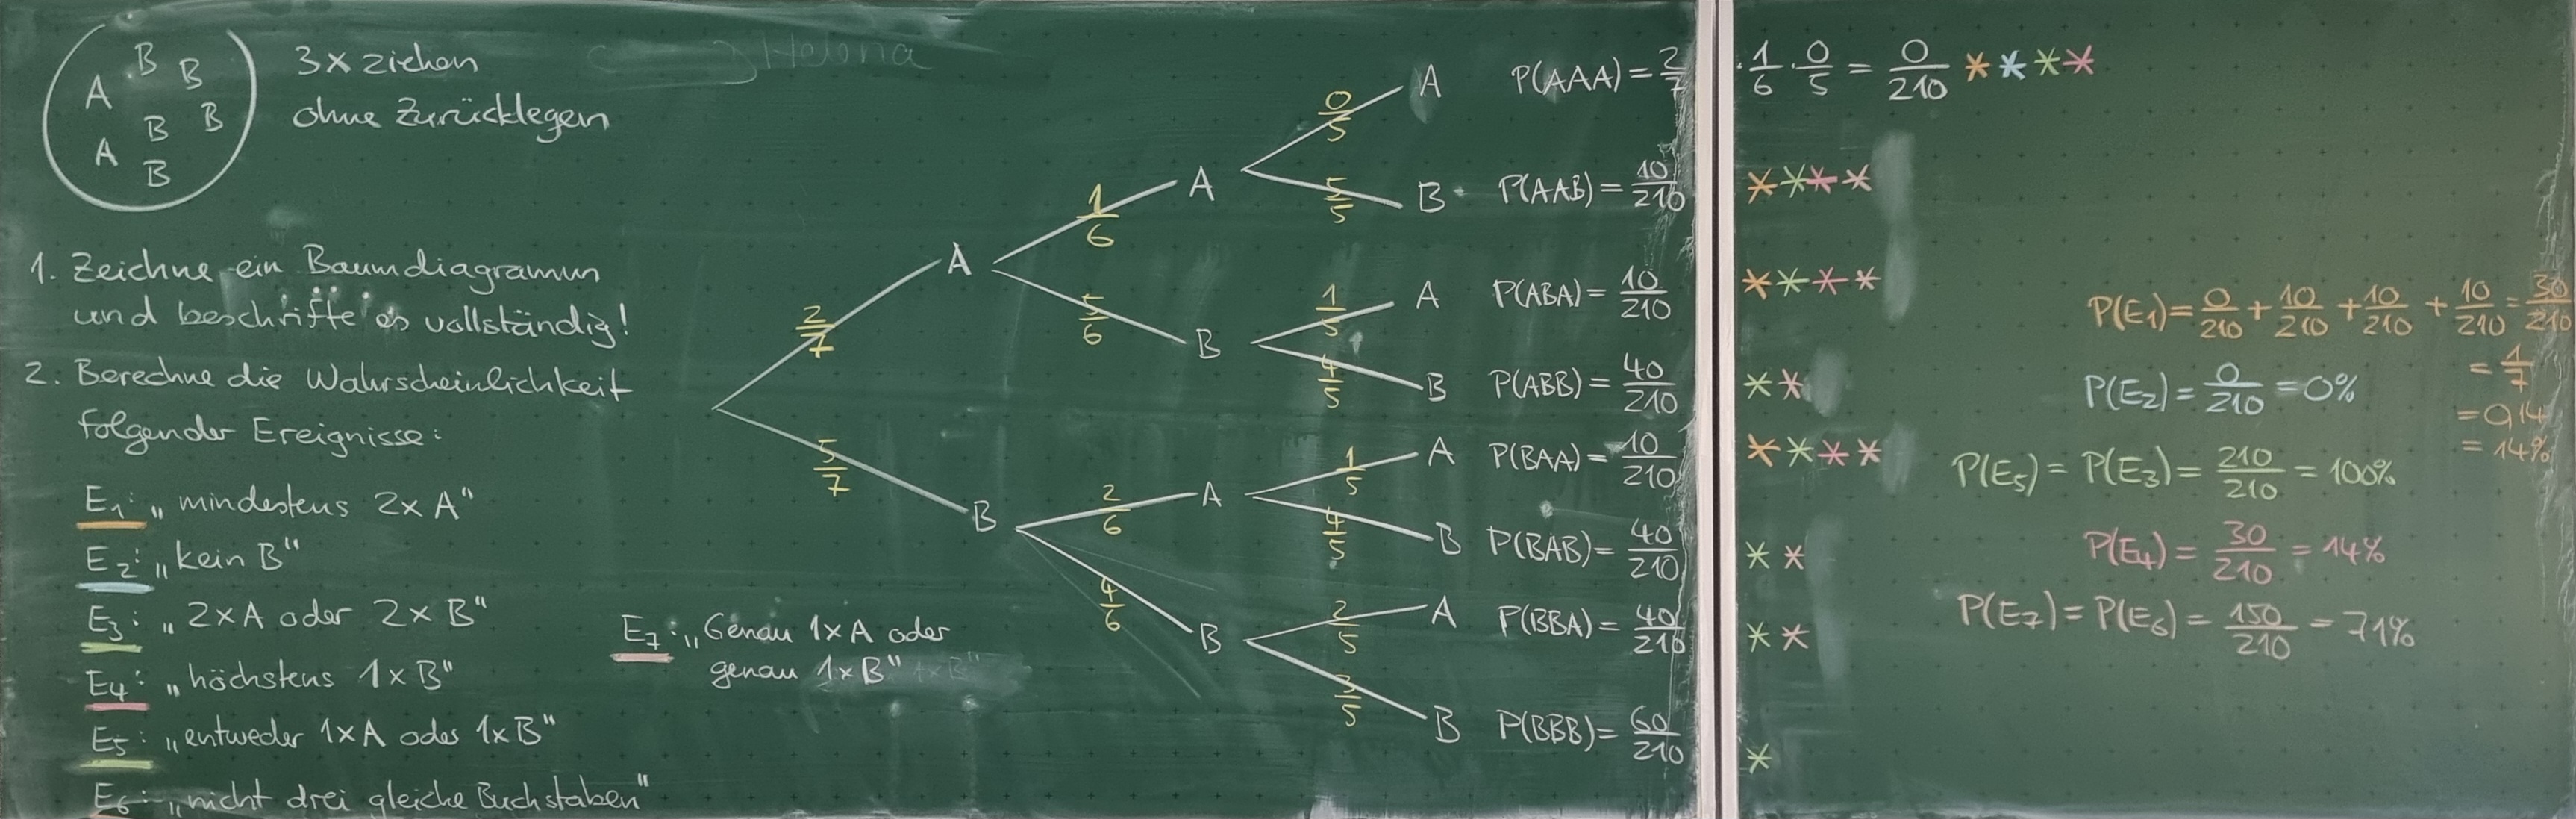 A B B
B B
A B
3x ziehen
ohne Zurücklegen
Helena
1. Zeichne ein Baumdiagramm
und beschrifte es vollständig!
2. Berechne die Wahrscheinlichkeit
folgender Ereignisse:
E1: „mindestens 2x A“
E2: „kein B“
E3: „2x A oder 2x B“
E4: „höchstens 1x B“
E5: „entweder 1x A oder 1x B“
E6: „nicht drei gleiche Buchstaben“
E7: „Genau 1x A oder
genau 1x B“
2/7 A
5/7 B
1/6 A
5/6 B
2/6 A
4/6 B
0/5 A P(AAA) = 2/7 · 1/6 · 0/5 = 0/210 ****
5/5 B P(AAB) = 10/210 ****
1/5 A P(ABA) = 10/210 ****
4/5 B P(ABB) = 40/210 **
1/5 A P(BAA) = 10/210 ****
4/5 B P(BAB) = 40/210 **
2/5 A P(BBA) = 40/210 **
3/5 B P(BBB) = 60/210 *
P(E1) = 0/210 + 10/210 + 10/210 + 10/210 = 30/210
= 1/7
= 0,14
= 14%
P(E2) = 0/210 = 0%
P(E5) = P(E3) = 210/210 = 100%
P(E4) = 30/210 = 14%
P(E7) = P(E6) = 150/210 = 71%